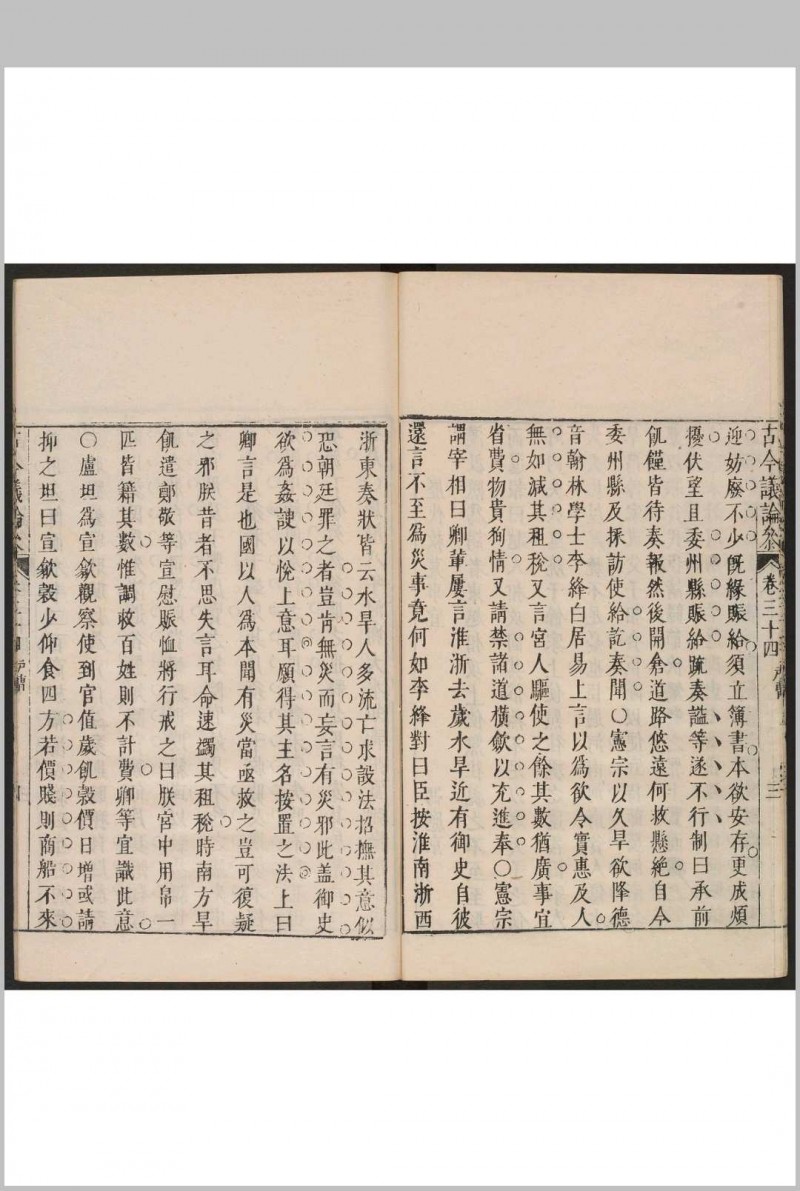 古今議論參 卷三十四
迎妨廢不少旣緣賑給須立簿書本欲安存更成煩
擾伏望且委州縣賑給䟽奏謚等遂不行制曰承前
飢饉皆待奏報然後開倉道路悠遠何救懸絶自今
委州縣及採訪使給訖奏聞○憲宗以久旱欲降德
音翰林學士李絳白居易上言以爲欲令實惠及人
無如減其租稅又言宮人驅使之餘其數猶廣事宜
省費物貴狥情又請禁諸道橫歛以充進奉○憲宗
謂宰相曰卿輩屢言淮浙去歲水旱近有御史自彼
還言不至爲災事竟何如李絳對曰臣按淮南浙西
浙東奏狀皆云水旱人多流亡求設法招撫其意似
恐朝廷罪之者豈肯無災而妄言有災邪此盖御史
欲爲姦諛以悅上意耳願得其主名按置之法上曰
卿言是也國以人爲本聞有災當亟救之豈可復疑
之邪朕昔者不思失言耳命速蠲其租稅時南方旱
飢遣鄭敬等宣慰賑恤將行戒之曰朕宮中用帛一
匹皆籍其數惟賙救百姓則不計費卿等宜識此意
○盧坦爲宣歙觀察使到官值歲飢穀價日增或請
抑之坦曰宣歙穀少仰食四方若價賤則商船不來